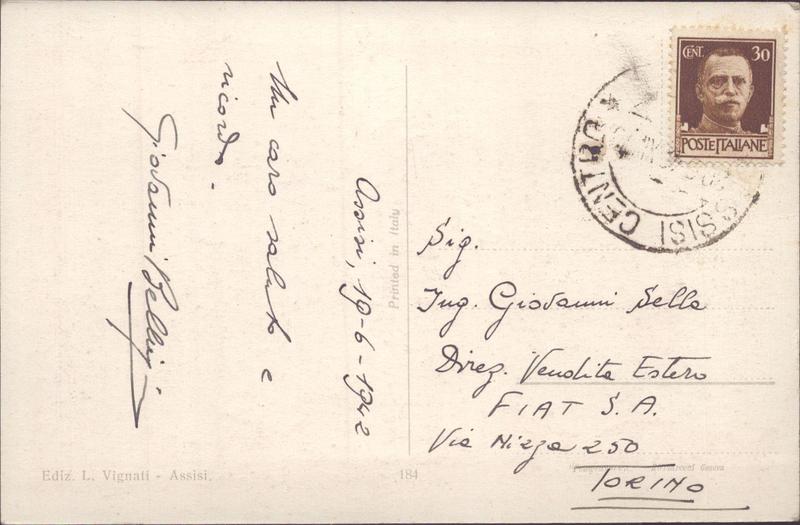 Assisi, 19-6-1942
Un caro saluto e
ricordo.
Giovanni
Printed in Italy
CENT. 30
POSTE ITALIANE
ASSISI CENTRO
Sig.
Ing. Giovanni Sella
Direz. Vendita Estero
FIAT S.A.
Via Nizza 250
TORINO
Ediz. L. Vignati - Assisi.
184
Genova